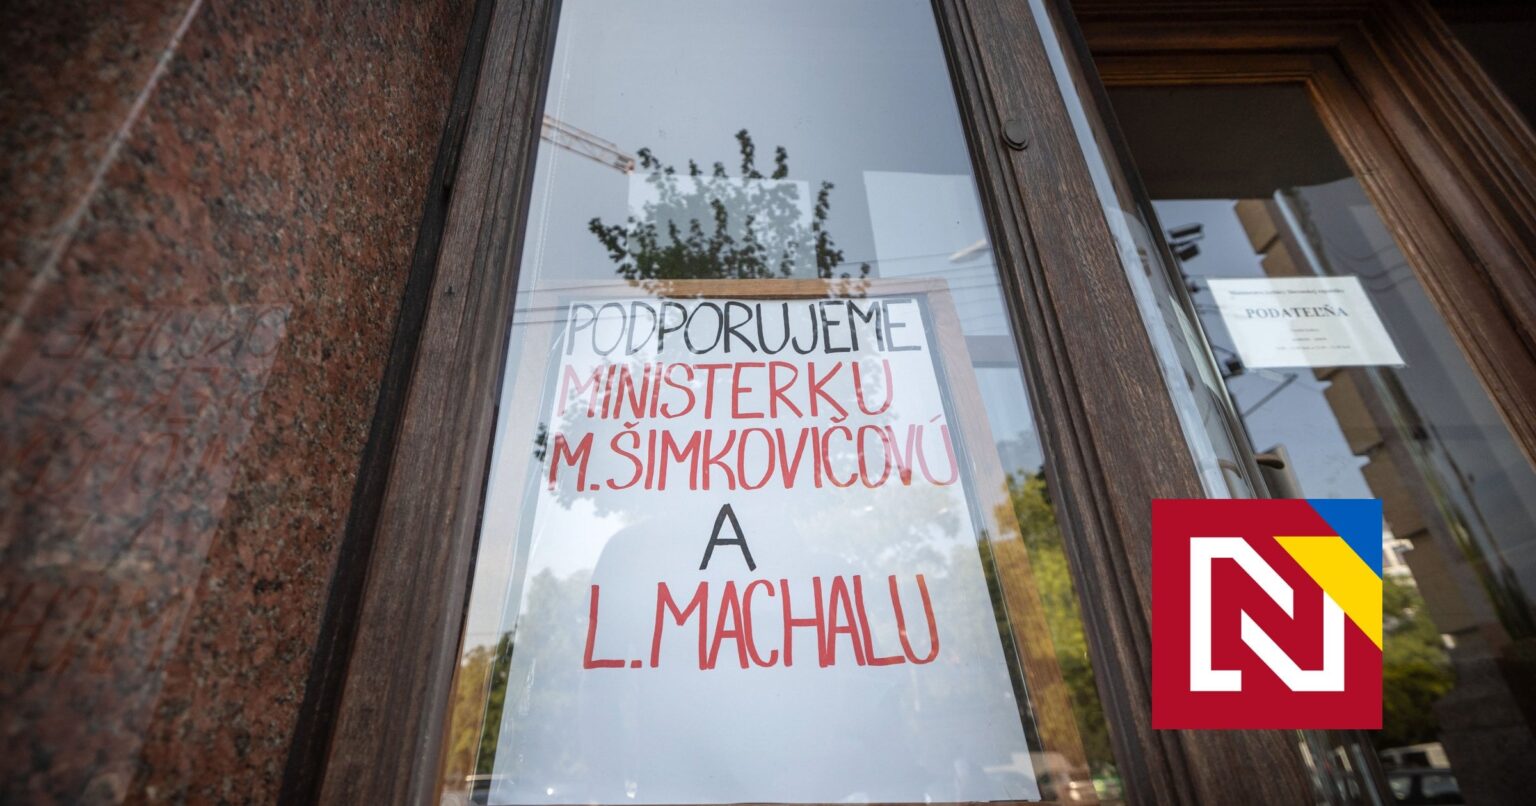 PODPORUJEME
MINISTERKU
M. ŠIMKOVIČOVÚ
A
L. MACHALU
PODATEĽŇA
N